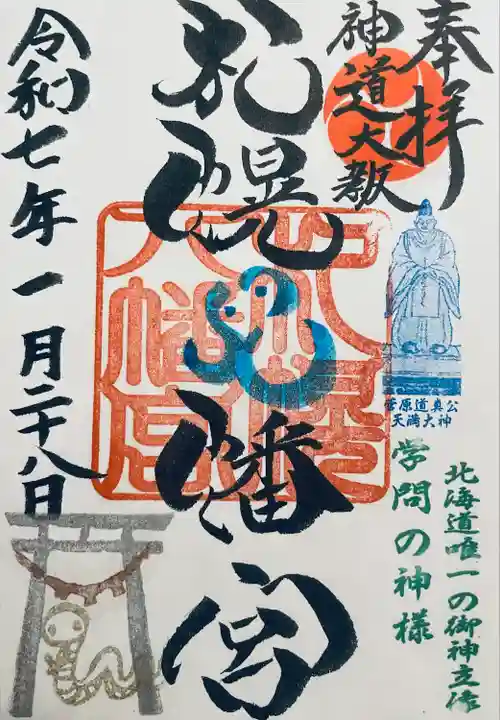 奉拝
神道大教
札幌八幡宮
菅原道真公
天満大神
学問の神様
北海道唯一の御神立像
令和七年一月二十八日